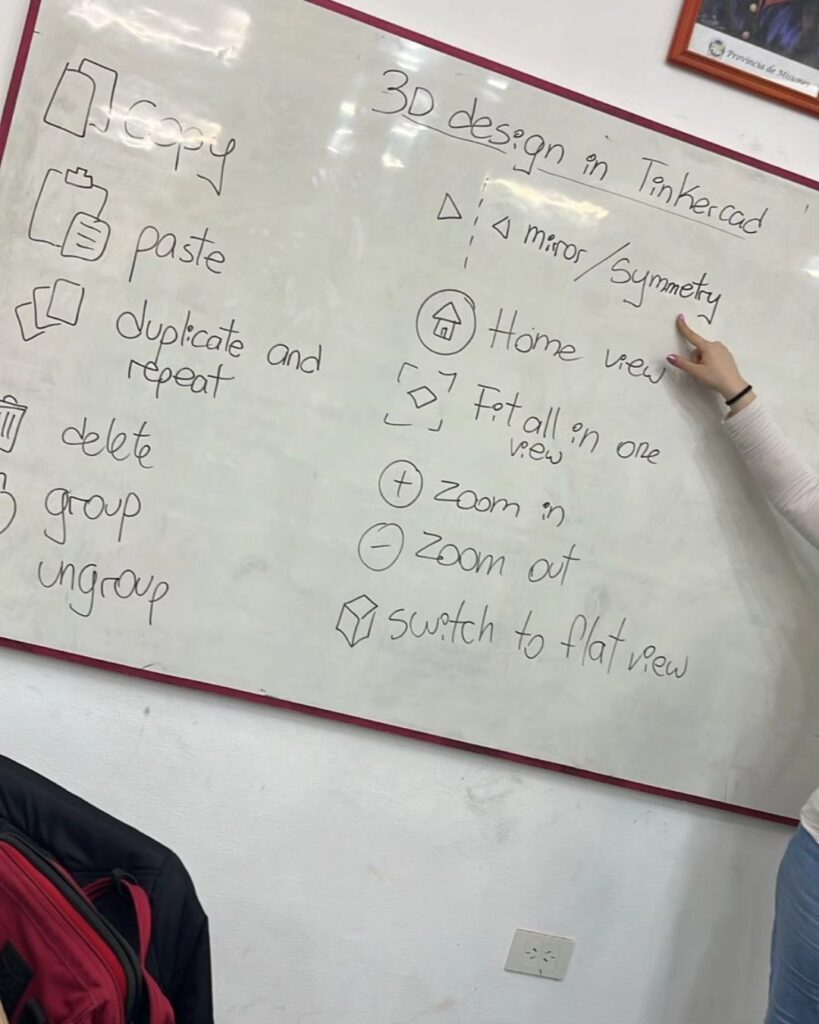 Provincia de Misiones
3D design in Tinkercad
copy
paste
duplicate and
repeat
delete
group
ungroup
mirror/symmetry
Home view
Fit all in one
view
Zoom in
Zoom out
switch to flat view